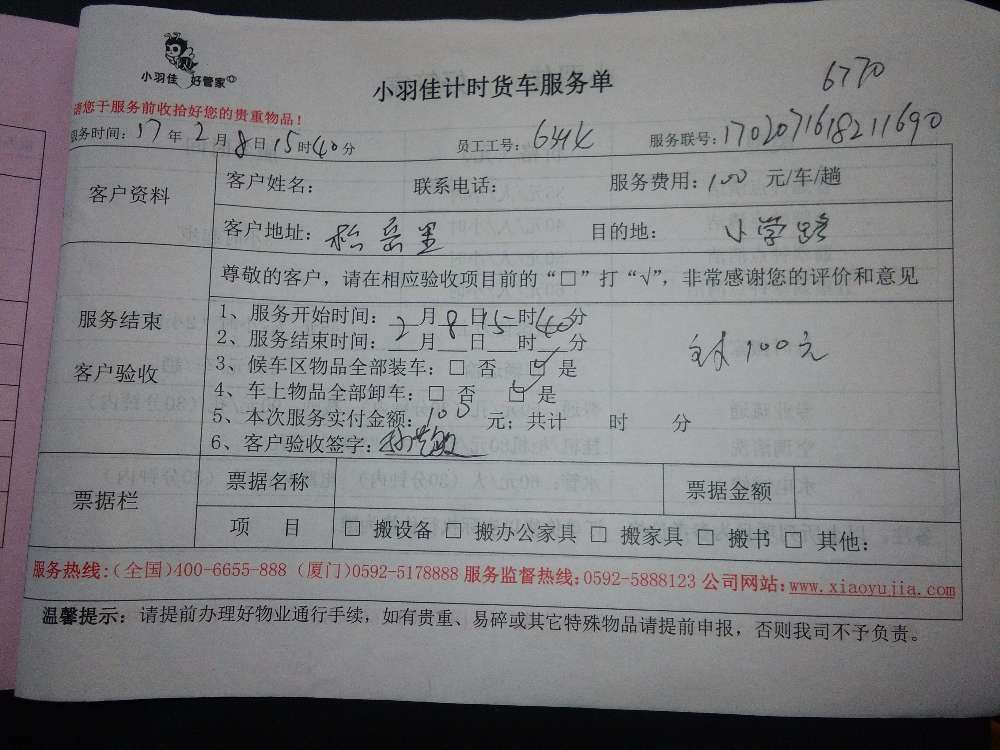 小羽佳 好管家
小羽佳计时货车服务单
6770
请您于服务前收拾好您的贵重物品！
服务时间：17年2月8日15时40分 员工工号： 服务联号：1702071618211690
客户资料
客户姓名： 联系电话： 服务费用：100 元/车/趟
客户地址：松岳里 目的地：小学路
服务结束
客户验收
尊敬的客户，请在相应验收项目前的“□”打“√”，非常感谢您的评价和意见
1、服务开始时间：2月8日15时40分
2、服务结束时间：___月___日___时___分
3、候车区物品全部装车：□ 否 ☑ 是
4、车上物品全部卸车：□ 否 ☑ 是
5、本次服务实付金额：100 元；共计 时 分
6、客户验收签字：
100元
票据栏
票据名称 票据金额
项 目 □ 搬设备 □ 搬办公家具 □ 搬家具 □ 搬书 □ 其他：
服务热线：（全国）400-6655-888（厦门）0592-5178888 服务监督热线：0592-5888123 公司网站：www.xiaoyujia.com
温馨提示：请提前办理好物业通行手续，如有贵重、易碎或其它特殊物品请提前申报，否则我司不予负责。